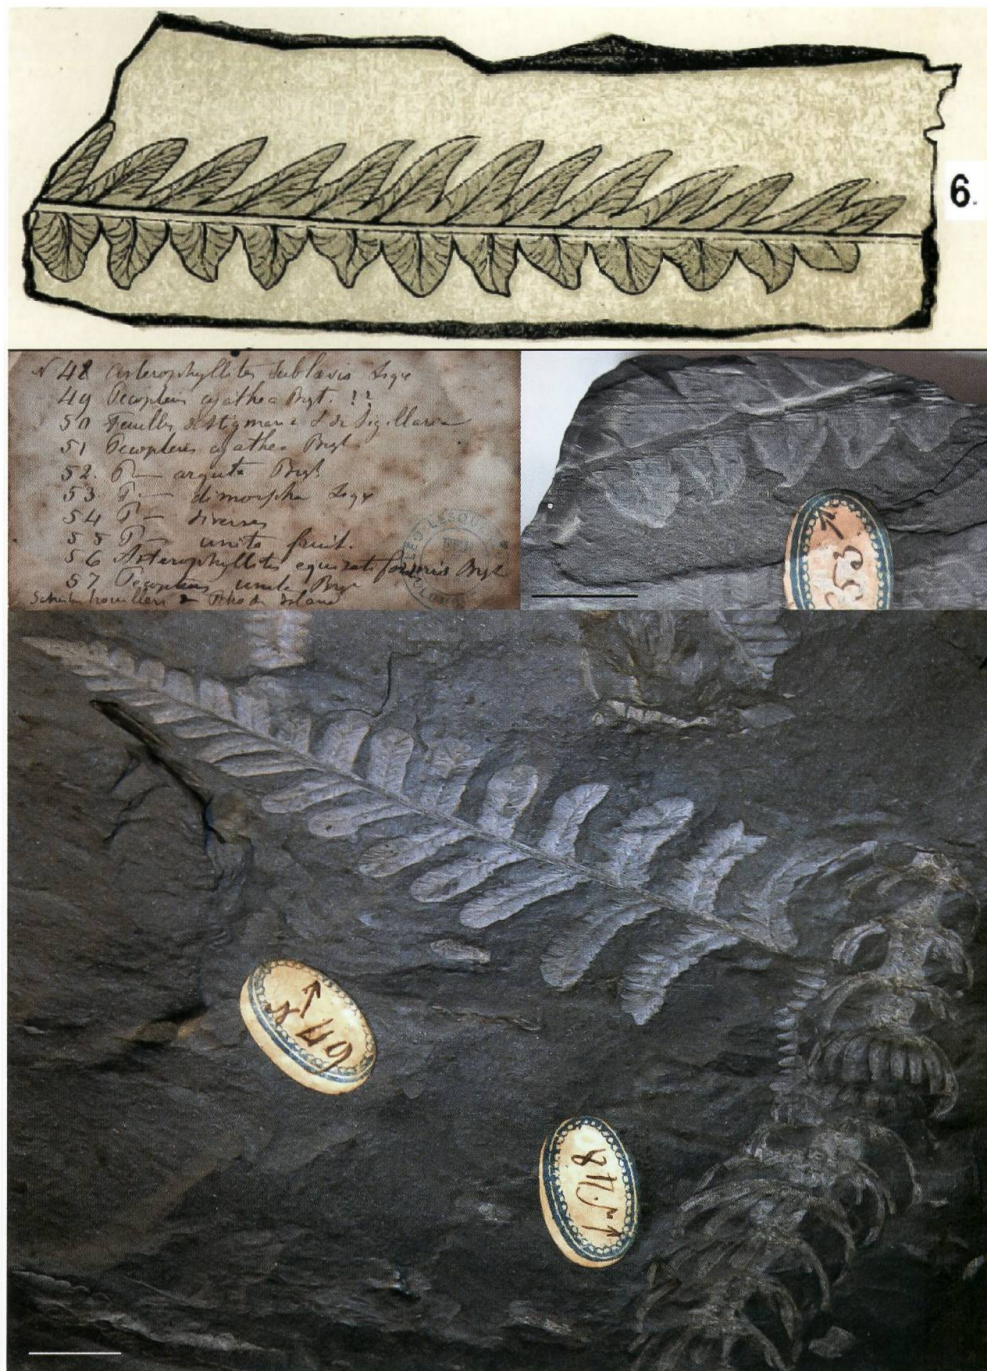 6.
N 48 Asterophyllites sublaevis Lsqx
49 Pecopteris cyathea Bgt. ??
50 Feuilles de Stigmaria & de Sigillaria
51 Pecopteris cyathea Bgt
52. P— arguta Bgt
53 P— dimorpha Lsqx
54 P— diverses
55 P— unita fruit.
56 Asterophyllites equisetiformis Bgt
57 Pecopteris unita Bgt
Schistes houillers de Rhode Island
53
N 49
N. 48